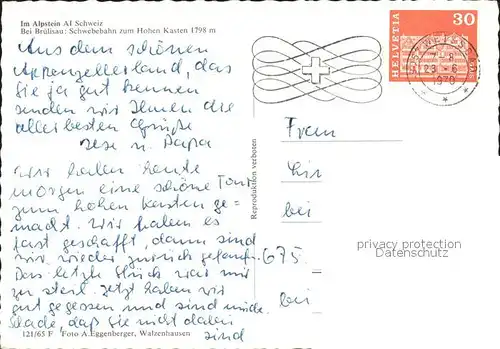 Im Alpstein AI Schweiz
Bei Brülisau: Schwebebahn zum Hohen Kasten 1798 m
Aus dem schönen
Appenzellerland, das
Sie ja gut kennen
senden wir Ihnen die
allerbesten Grüße
u. Papa
Wir haben heute
morgen eine schöne Tour
zum hohen Kasten ge-
macht. Wir haben es
fast geschafft, dann sind
wir wieder zurück gelaufen.
Das letzte Stück war mir
zu steil. Jetzt haben wir
gut gegessen und sind müde.
Schade, daß Sie nicht dabei
sind
121/65 F Foto A. Eggenberger, Walzenhausen
Reproduktion verboten
HELVETIA
30
23 - 6
1970
675
bei
bei
privacy protection
Datenschutz